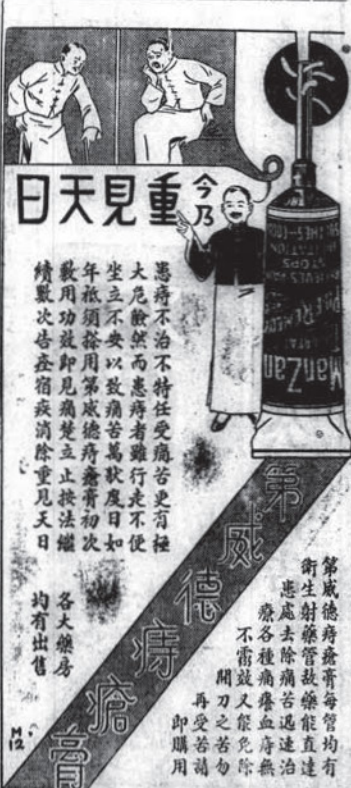 今乃
重見天日
ManZan
PILE REMEDY
STOPS
患痔不治不特任受痛苦更有極
大危險然而患痔者雖行走不便
坐立不安以致痛苦萬狀度日如
年祗須搽用第威德痔瘡膏初次
敷用功效即見痛楚立止按法繼
續數次告痊宿疾消除重見天日
各大藥房
均有出售
第威德痔瘡膏
第威德痔瘡膏每管均有
衛生射藥管故藥能直達
患處去除痛苦迅速治
療各種痛癢血痔無
不霛效又能免除
開刀之苦勿
再受苦請
即購用
M
12.